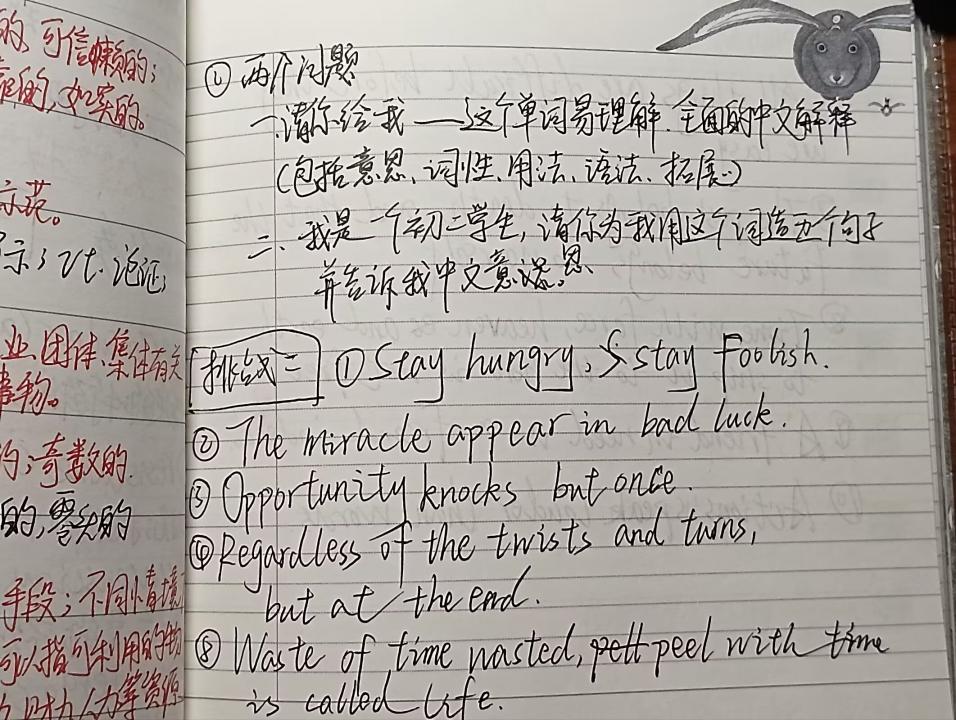 的、可信懒的；
的，如实的。
示范。
示；vt. 论证；
业、团体、集体有关
事物。
；奇数的．
的，零头的
手段；不同情境
可以指可利用的物
财力、人力等资源
④ 两个问题
一、请你给我——这个单词易理解、全面的中文解释
（包括意思、词性、用法、语法、拓展。）
二、我是一个初二学生，请你为我用这个词造五个句子
并告诉我中文意思。
挑战二 ① Stay hungry, stay foolish.
② The miracle appear in bad luck.
③ Opportunity knocks but once.
④ Regardless of the twists and turns,
but at the end.
⑤ Waste of time wasted, peel with time
is called life.